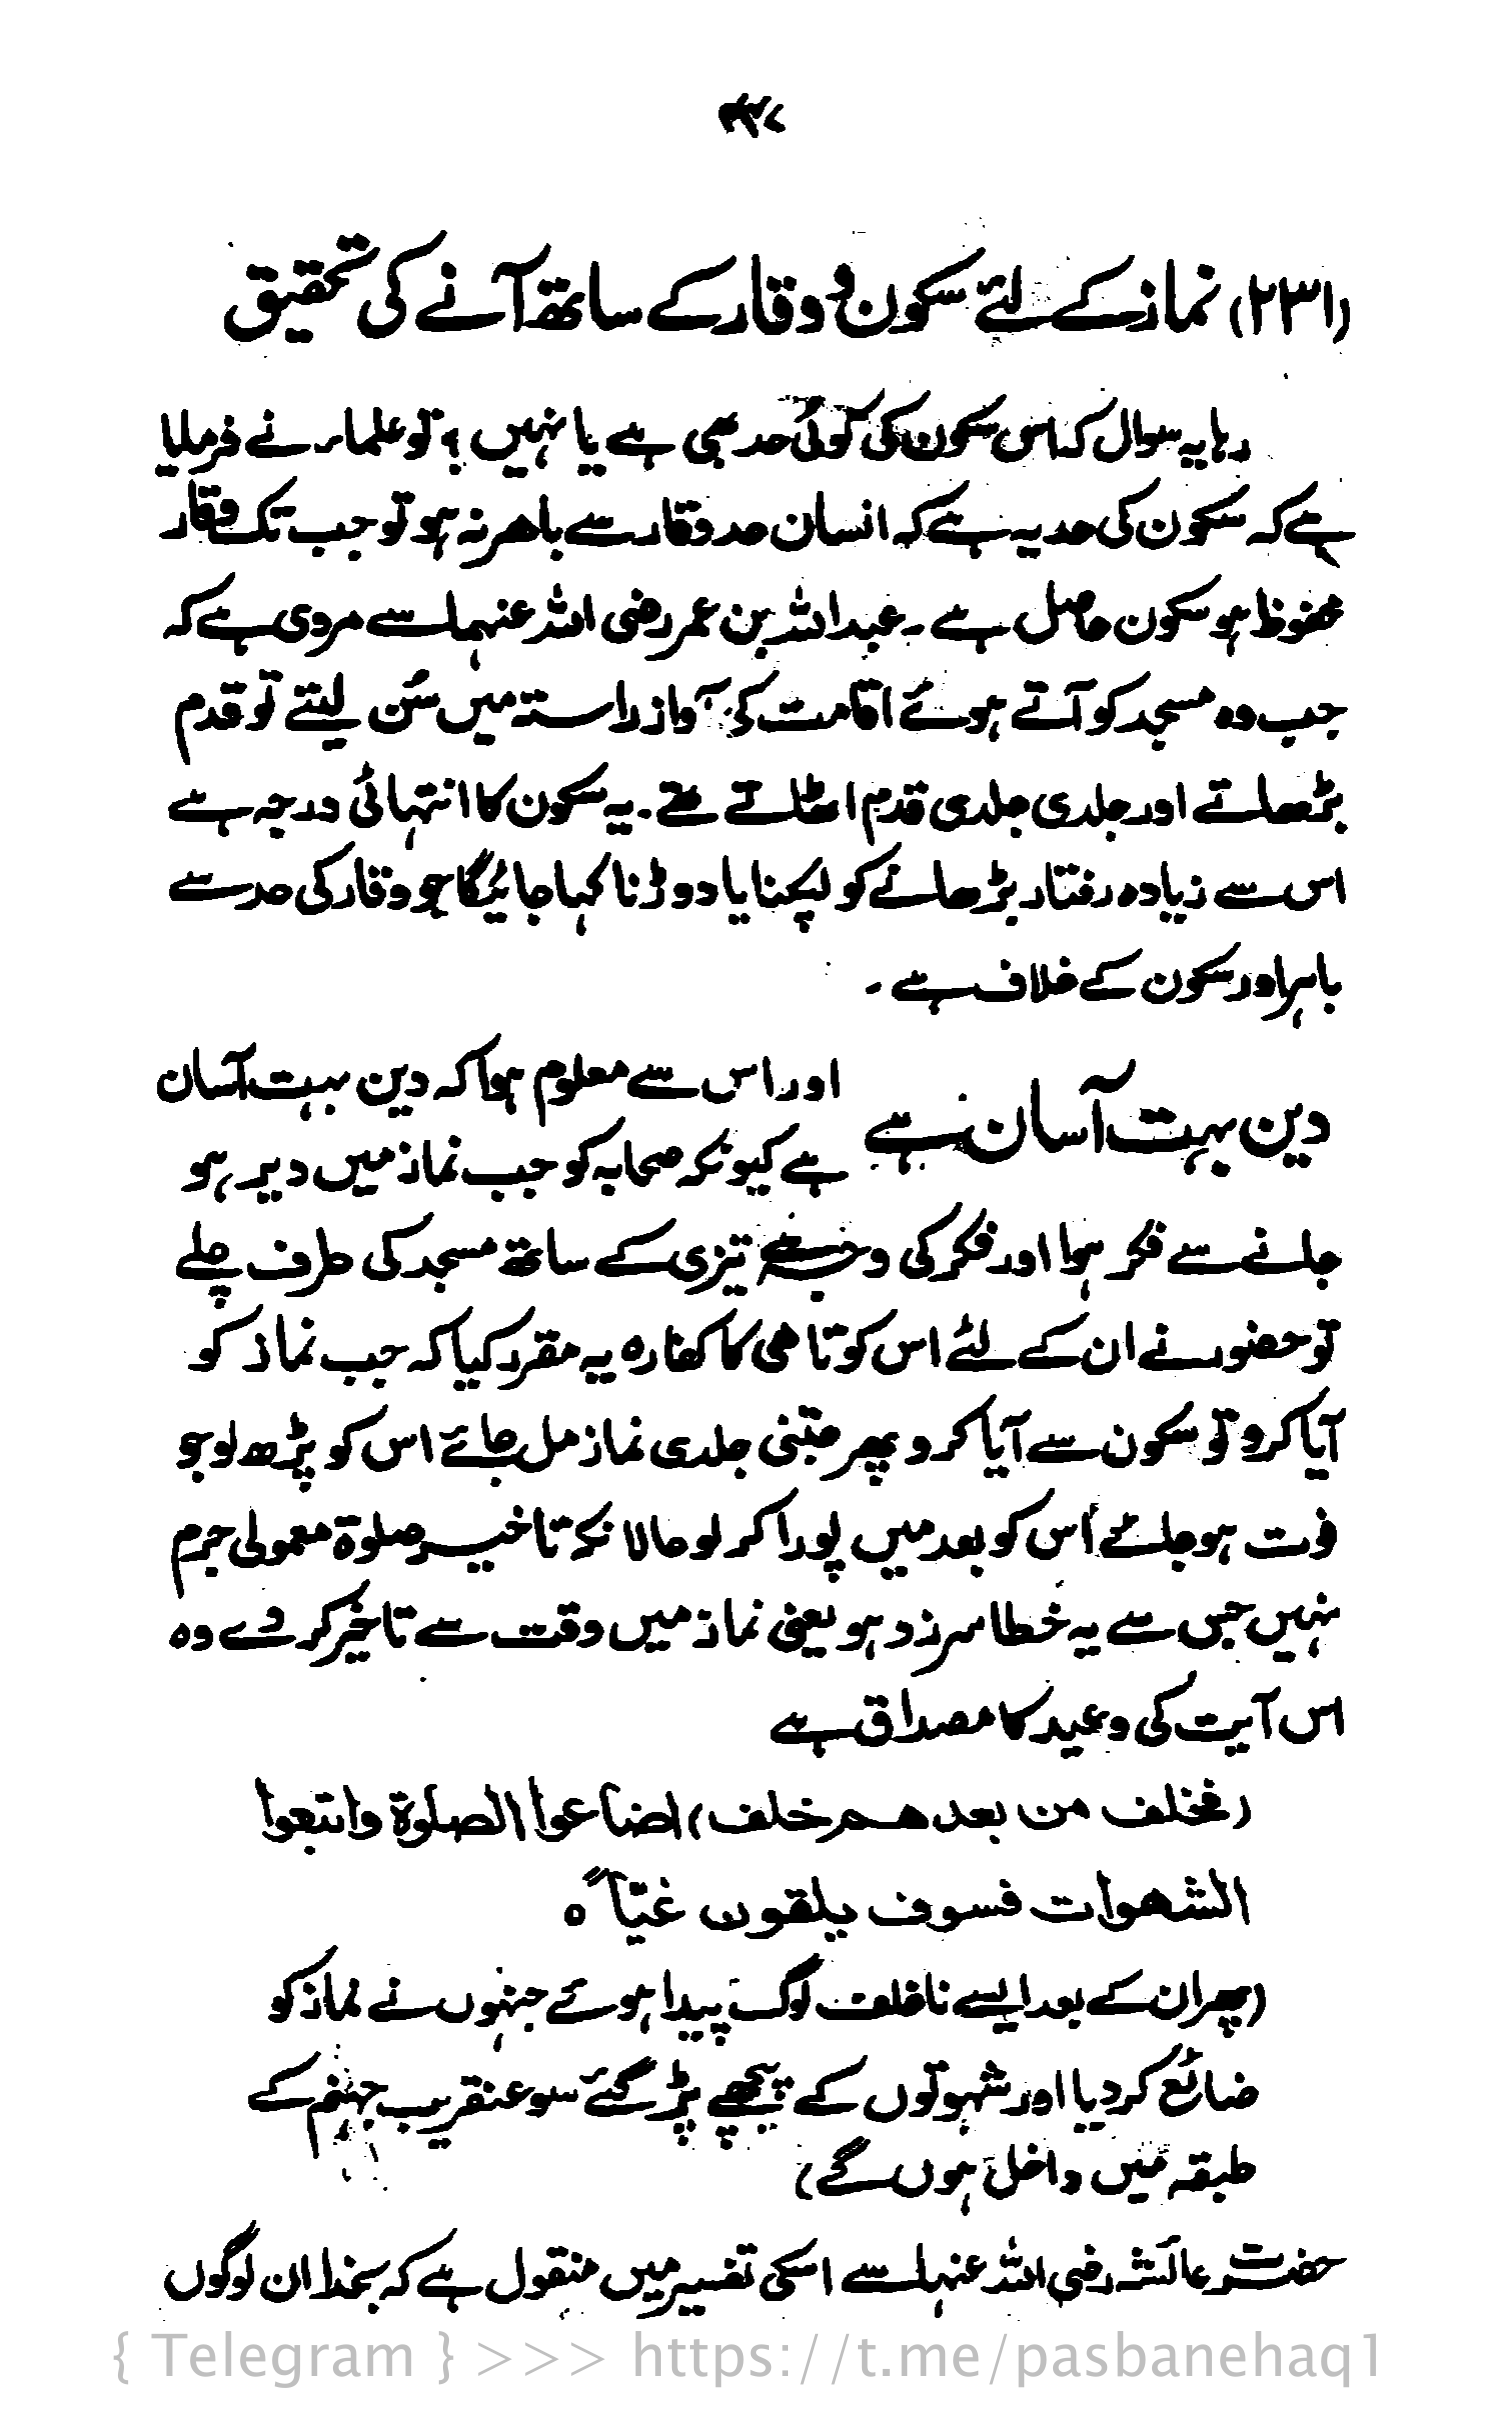 (۲۳۱) نماز کے لئے سکون و وقار کے ساتھ آنے کی تحقیق
رہا یہ سوال کہ اس سکون کی کوئی حد بھی ہے یا نہیں ؟ تو علماء نے فرمایا
ہے کہ سکون کی حد یہ ہے کہ انسان حد وقار سے باھر نہ ہو تو جب تک وقار
محفوظ ہو سکون حاصل ہے ۔ عبداللہ بن عمر رضی اللہ عنہما سے مروی ہے کہ
جب وہ مسجد کو آتے ہوئے اقامت کی آواز راستہ میں سُن لیتے تو قدم
بڑھاتے اور جلدی جلدی قدم اٹھاتے تھے ۔ یہ سکون کا انتہائی درجہ ہے
اس سے زیادہ رفتار بڑھانے کو لپکنا یا دوڑنا کہا جائیگا جو وقار کی حد سے
باہر اور سکون کے خلاف ہے ۔
دین بہت آسان ہے
اور اس سے معلوم ہوا کہ دین بہت آسان
ہے کیونکہ صحابہ کو جب نماز میں دیر ہو
جانے سے فکر ہوا اور فکر کی وجہ سے تیزی کے ساتھ مسجد کی طرف چلے
تو حضور نے ان کے لئے اس کوتاھی کا کفارہ یہ مقرر کیا کہ جب نماز کو
آیا کرو تو سکون سے آیا کرو پھر جتنی جلدی نماز مل جائے اس کو پڑھ لو جو
فوت ہو جائے اُس کو بعد میں پورا کر لو حالانکہ تاخیر صلوۃ معمولی جرم
نہیں جس سے یہ خطا سرزد ہو یعنی نماز میں وقت سے تاخیر کر دے وہ
اس آیت کی وعید کا مصداق ہے
(فخلف من بعد ھم خلف) اضاعوا الصلوۃ واتبعوا
الشھوات فسوف یلقون غیّاً ہ
(پھر ان کے بعد ایسے ناخلف لوگ پیدا ہوئے جنہوں نے نماز کو
ضائع کر دیا اور شہوتوں کے پیچھے پڑ گئے سو عنقریب جہنم کے
طبقہ میں داخل ہوں گے)
حضرت عائشہ رضی اللہ عنہا سے اسکی تفسیر میں منقول ہے کہ بخدا ان لوگوں
{ Telegram } >>> https://t.me/pasbanehaq1